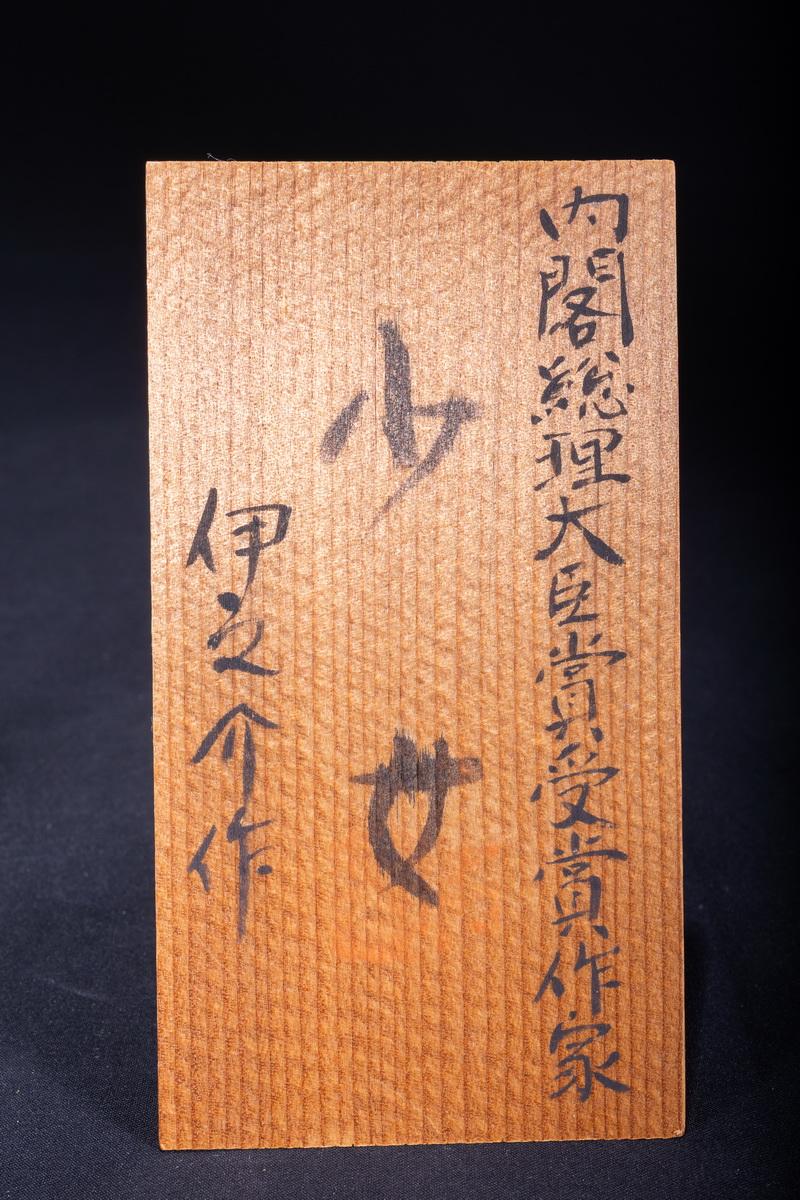 内閣総理大臣賞受賞作家
少女
伊之介作